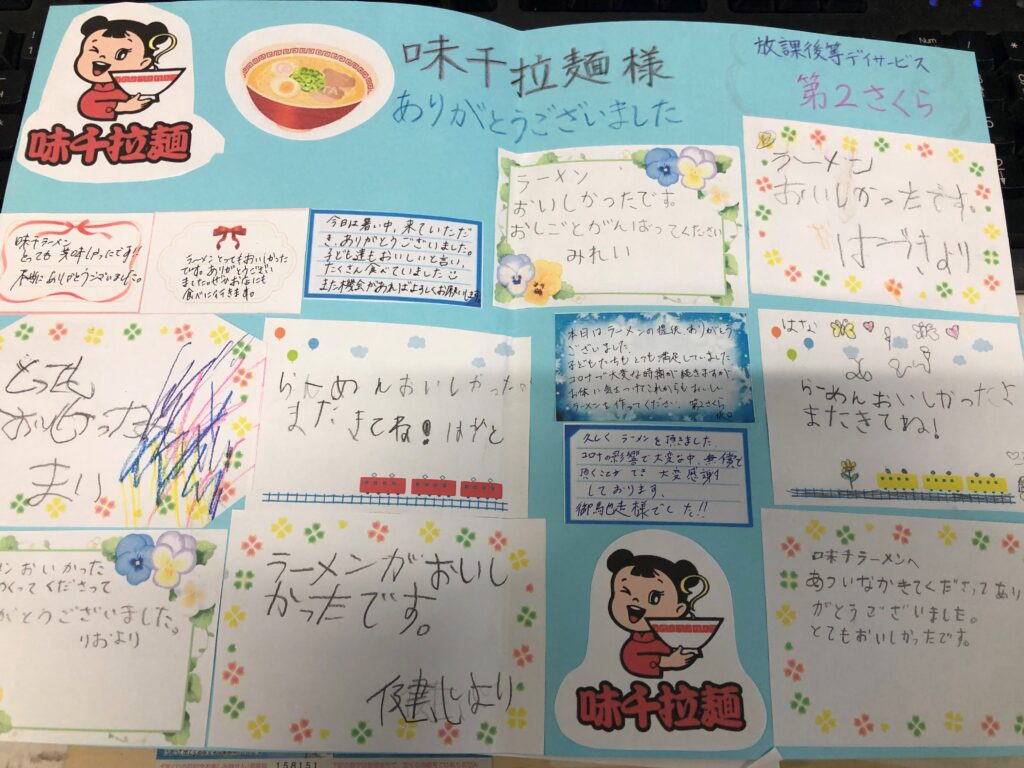 味千拉麺
味千拉麺様
ありがとうございました
放課後等デイサービス
第2さくら
味千ラーメン
とっても美味しかったです!!
本当にありがとうございました。
ラーメンとってもおいしかった
です。ありがとうござい
ました。ぜひお店にも
食べに行きます。
今日は暑い中、来ていただ
き、ありがとうございました。
子ども達もおいしいと言い、
たくさん食べていました
また機会があればよろしくお願いします
ラーメン
おいしかったです。
おしごとがんばってください
みれい
ラーメン
おいしかったです。
はづきより
とっても
おいしかった
まい
らーめんおいしかった
またきてね!はやと
本日はラーメンの提供ありがとう
ございました
子どもたちもとても満足していました
コロナで大変な時期が続きますが
お体に気をつけてこれからもおいしい
ラーメンを作ってください 第2さくら
久しくラーメンを頂きました
コロナの影響で大変な中無償で
頂くことができ大変感謝
しております。
御馳走様でした!!
はな
らーめんおいしかったよ
またきてね!
ンおいかった
つくってくださって
がとうございました。
りおより
ラーメンがおいし
かったです。
健しより
味千拉麺
味千ラーメンへ
あついなかきてくださってあり
がとうございました。
とてもおいしかったです。
158151